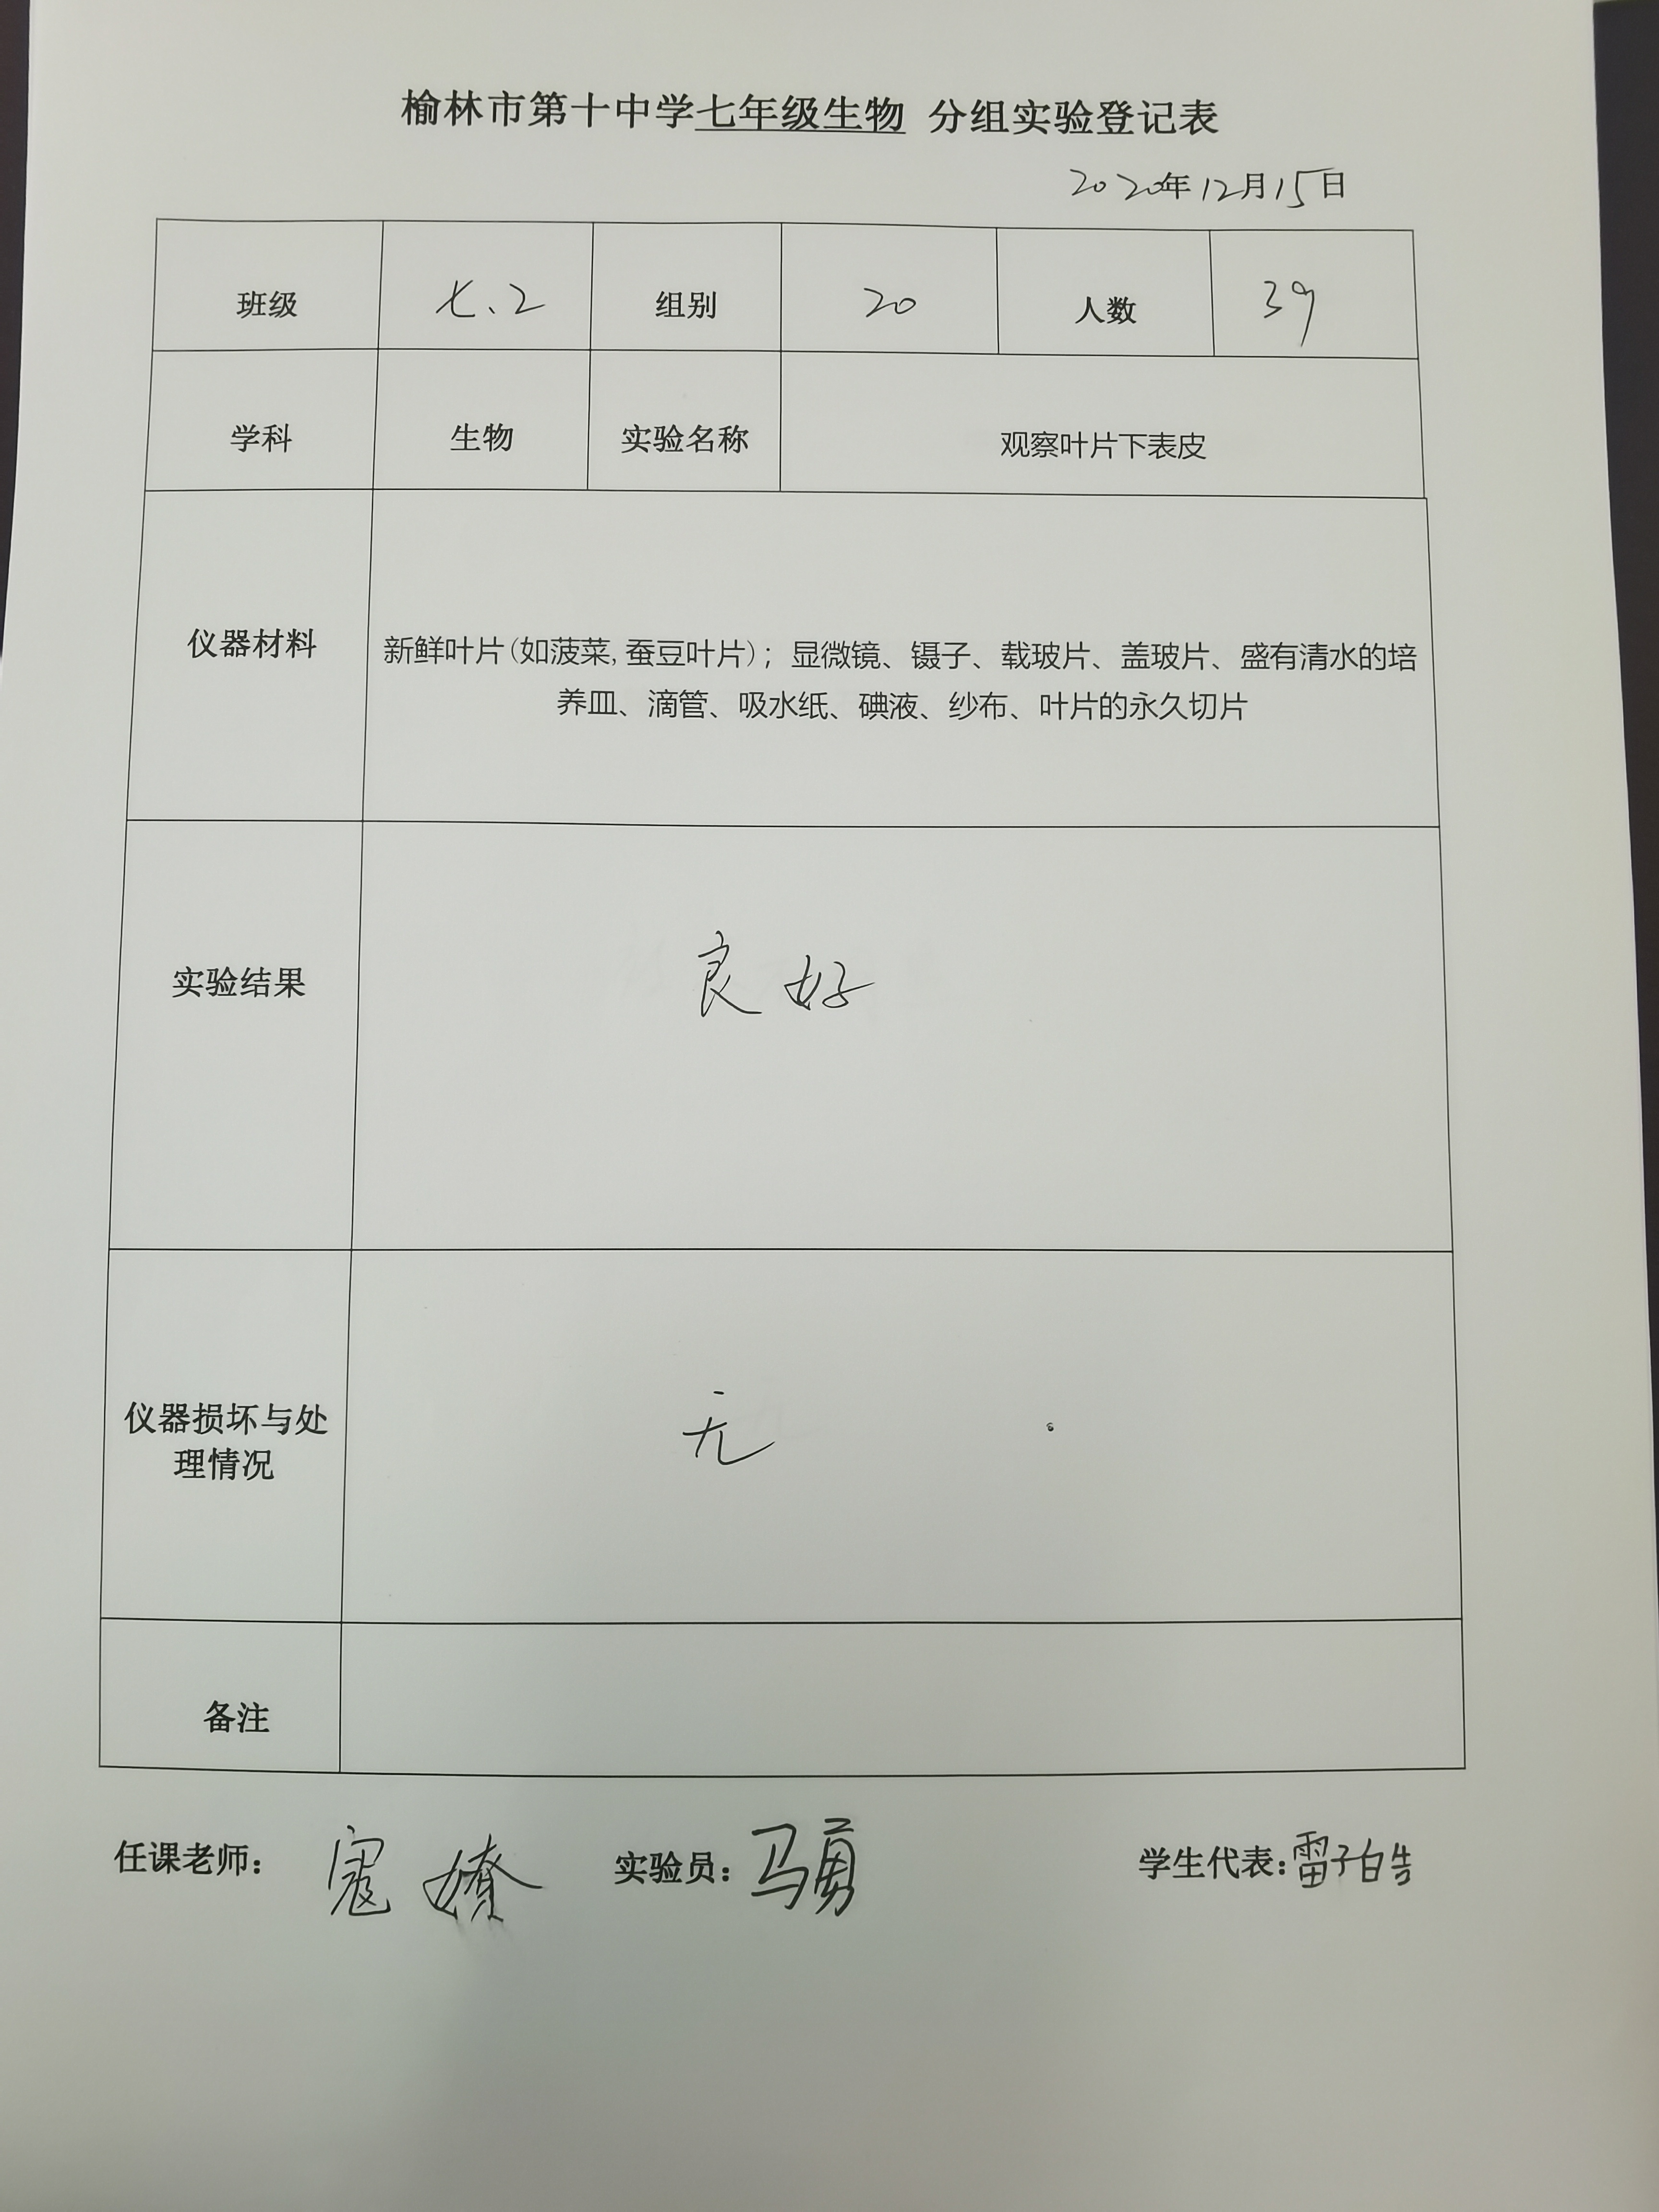 榆林市第十中学七年级生物 分组实验登记表
2020年12月15日
班级 七、2 组别 20 人数 39
学科 生物 实验名称 观察叶片下表皮
仪器材料
新鲜叶片(如菠菜,蚕豆叶片)；显微镜、镊子、载玻片、盖玻片、盛有清水的培
养皿、滴管、吸水纸、碘液、纱布、叶片的永久切片
实验结果 良好
仪器损坏与处
理情况
无
备注
任课老师： 寇 实验员：马勇 学生代表：雷子皓